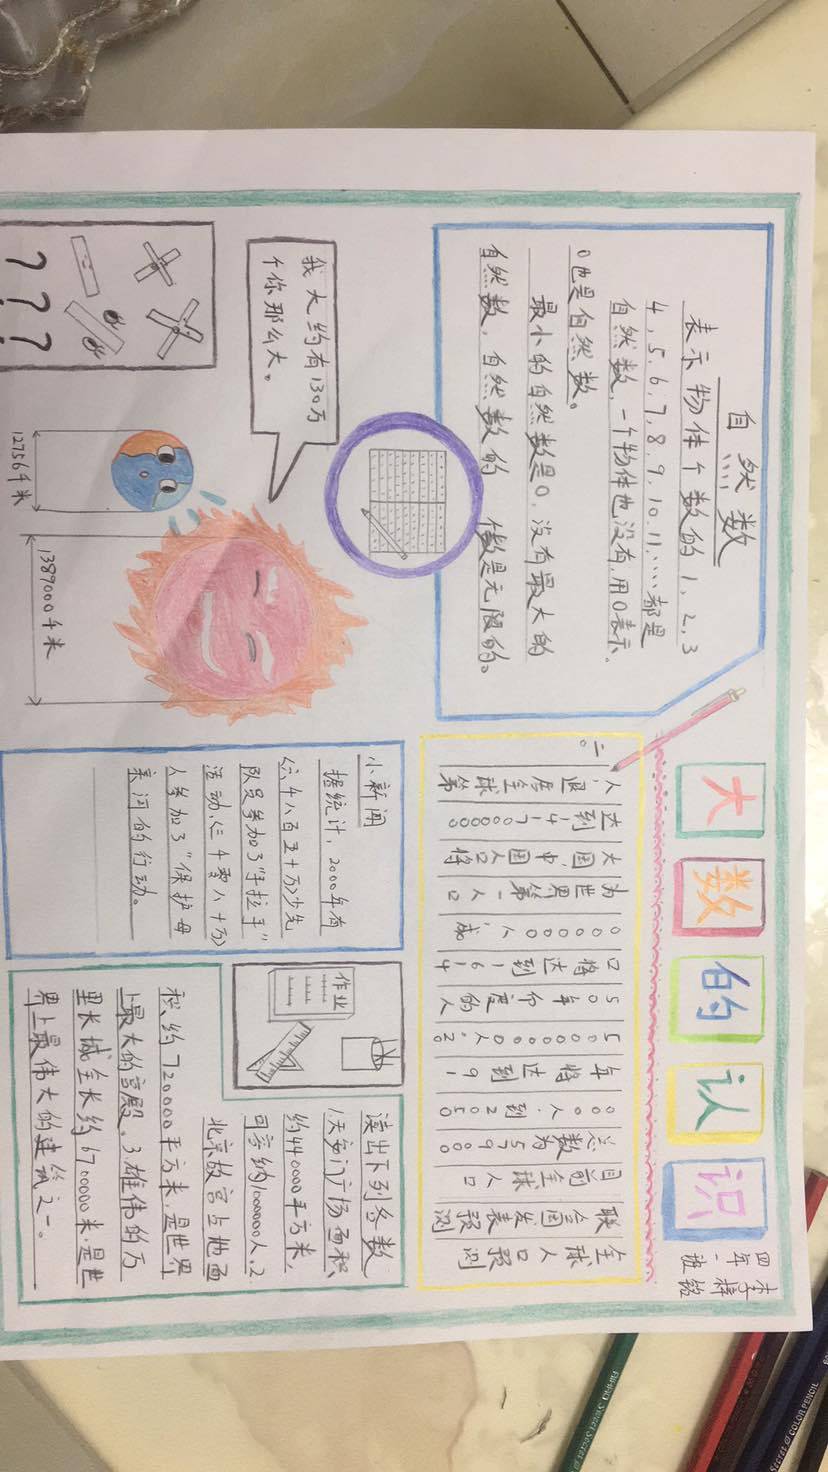 大数的认识
四年一班
自然数
表示物体个数的1,2,3
4,5,6,7,8,9,10.11,……都是
自然数,一个物体也没有,用0表示。
0也是自然数。
最小的自然数是0,没有最大的
自然数,自然数的 数是无限的。
我大约有130万
个你那么大。
12756千米
1389000千米
? ? ?
全球人口预测
联合国发表预测
目前全球人口
总数为57900
000人.到2050
年将达到91
500000人;2
50年印度的人
口将达到1614
0000人,成
为世界第一人口
大国,中国人口将
达到1417000000
人,退居全球第
二。
小新闻
据统计,2000年有
(六千八百五十万)少先
队员参加了"手拉手"
活动,(三千零八十万)
人参加了"保护母
亲河的行动。
作业
读出下列各数
1天安门广场面积
约440000平方米,
可容纳1000000人。2
北京故宫占地面
积约720000平方米,是世界
上最大的宫殿。3雄伟的万
里长城全长约6700000米,是世
界上最伟大的建筑之一。
COLOR PENCIL